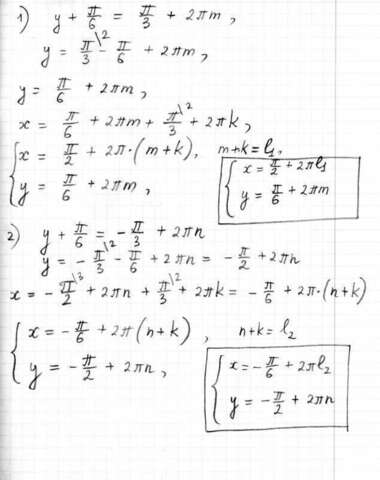 1) y + π/6 = π/3 + 2πm,
y = π/3\2 - π/6 + 2πm,
y = π/6 + 2πm,
x = π/6 + 2πm + π/3\2 + 2πk,
{ x = π/2 + 2π·(m+k), m+k = l₁, { x = π/2 + 2πl₁
{ y = π/6 + 2πm, { y = π/6 + 2πm
2) y + π/6 = -π/3 + 2πn
y = -π/3\2 - π/6 + 2πn = -π/2 + 2πn
x = -π/2\3 + 2πn + π/3\2 + 2πk = -π/6 + 2π·(n+k)
{ x = -π/6 + 2π(n+k), n+k = l₂
{ y = -π/2 + 2πn,
{ x = -π/6 + 2πl₂
{ y = -π/2 + 2πn